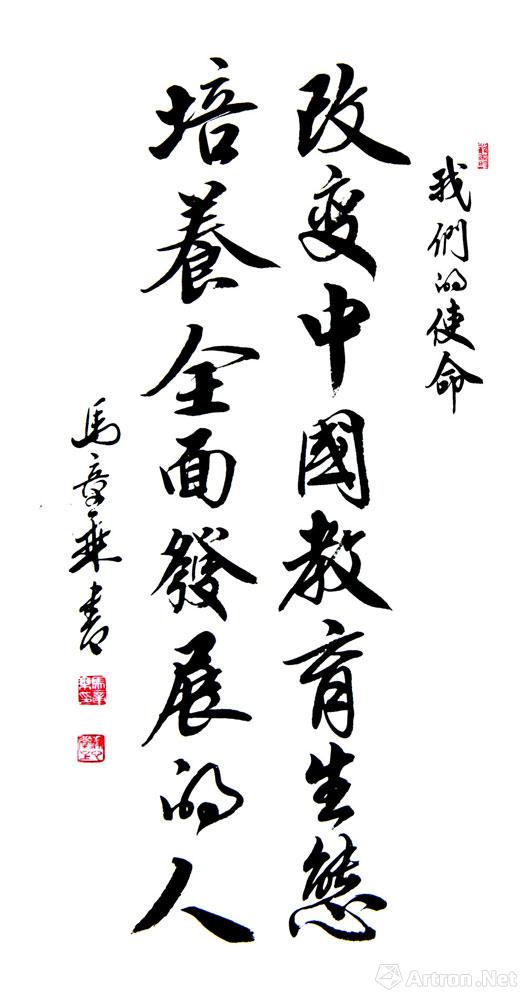 我們的使命
改變中國教育生態
培養全面發展的人
馬章乘書
Artron.Net